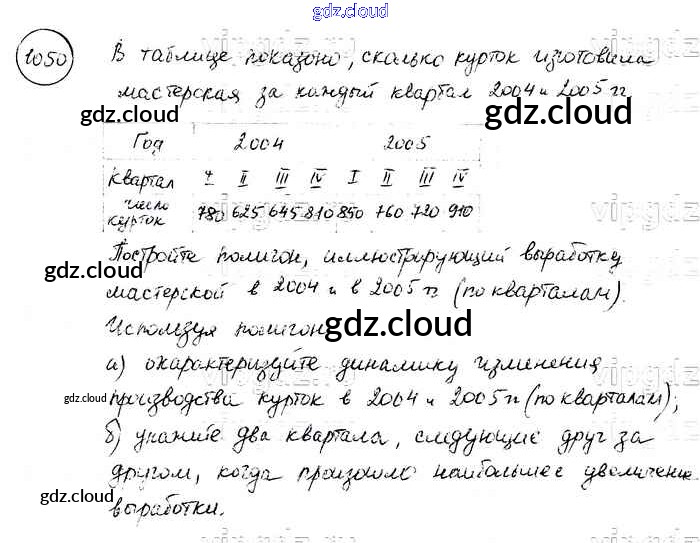 gdz.cloud
1050 В таблице показано, сколько курток изготовила
мастерская за каждый квартал 2004 и 2005 гг
gdz.cloud gdz.cloud
Год 2004 2005
квартал I II III IV I II III IV
число
курток 780 625 645 810 850 760 720 910
Постройте полигон, иллюстрирующий выработку
gdz.cloud
мастерской в 2004 и в 2005 гг (по кварталам).
Используя полигон
gdz.cloud
а) охарактеризуйте динамику изменения
gdz.cloud производства курток в 2004 и 2005 гг (по кварталам);
б) укажите два квартала, следующие друг за
другом, когда произошло наибольшее увеличение
gdz.cloud gdz.cloud
выработки.